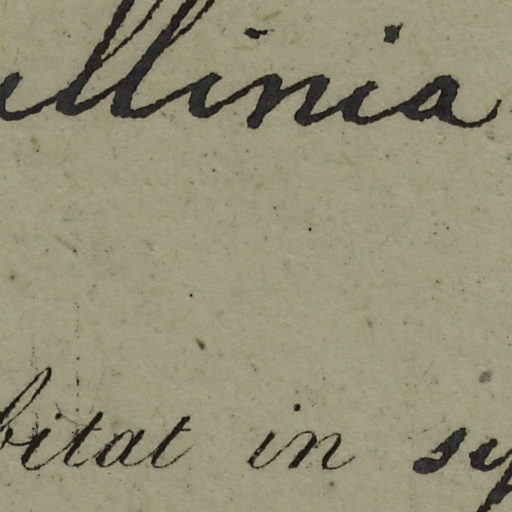 ullinia
bitat in sy